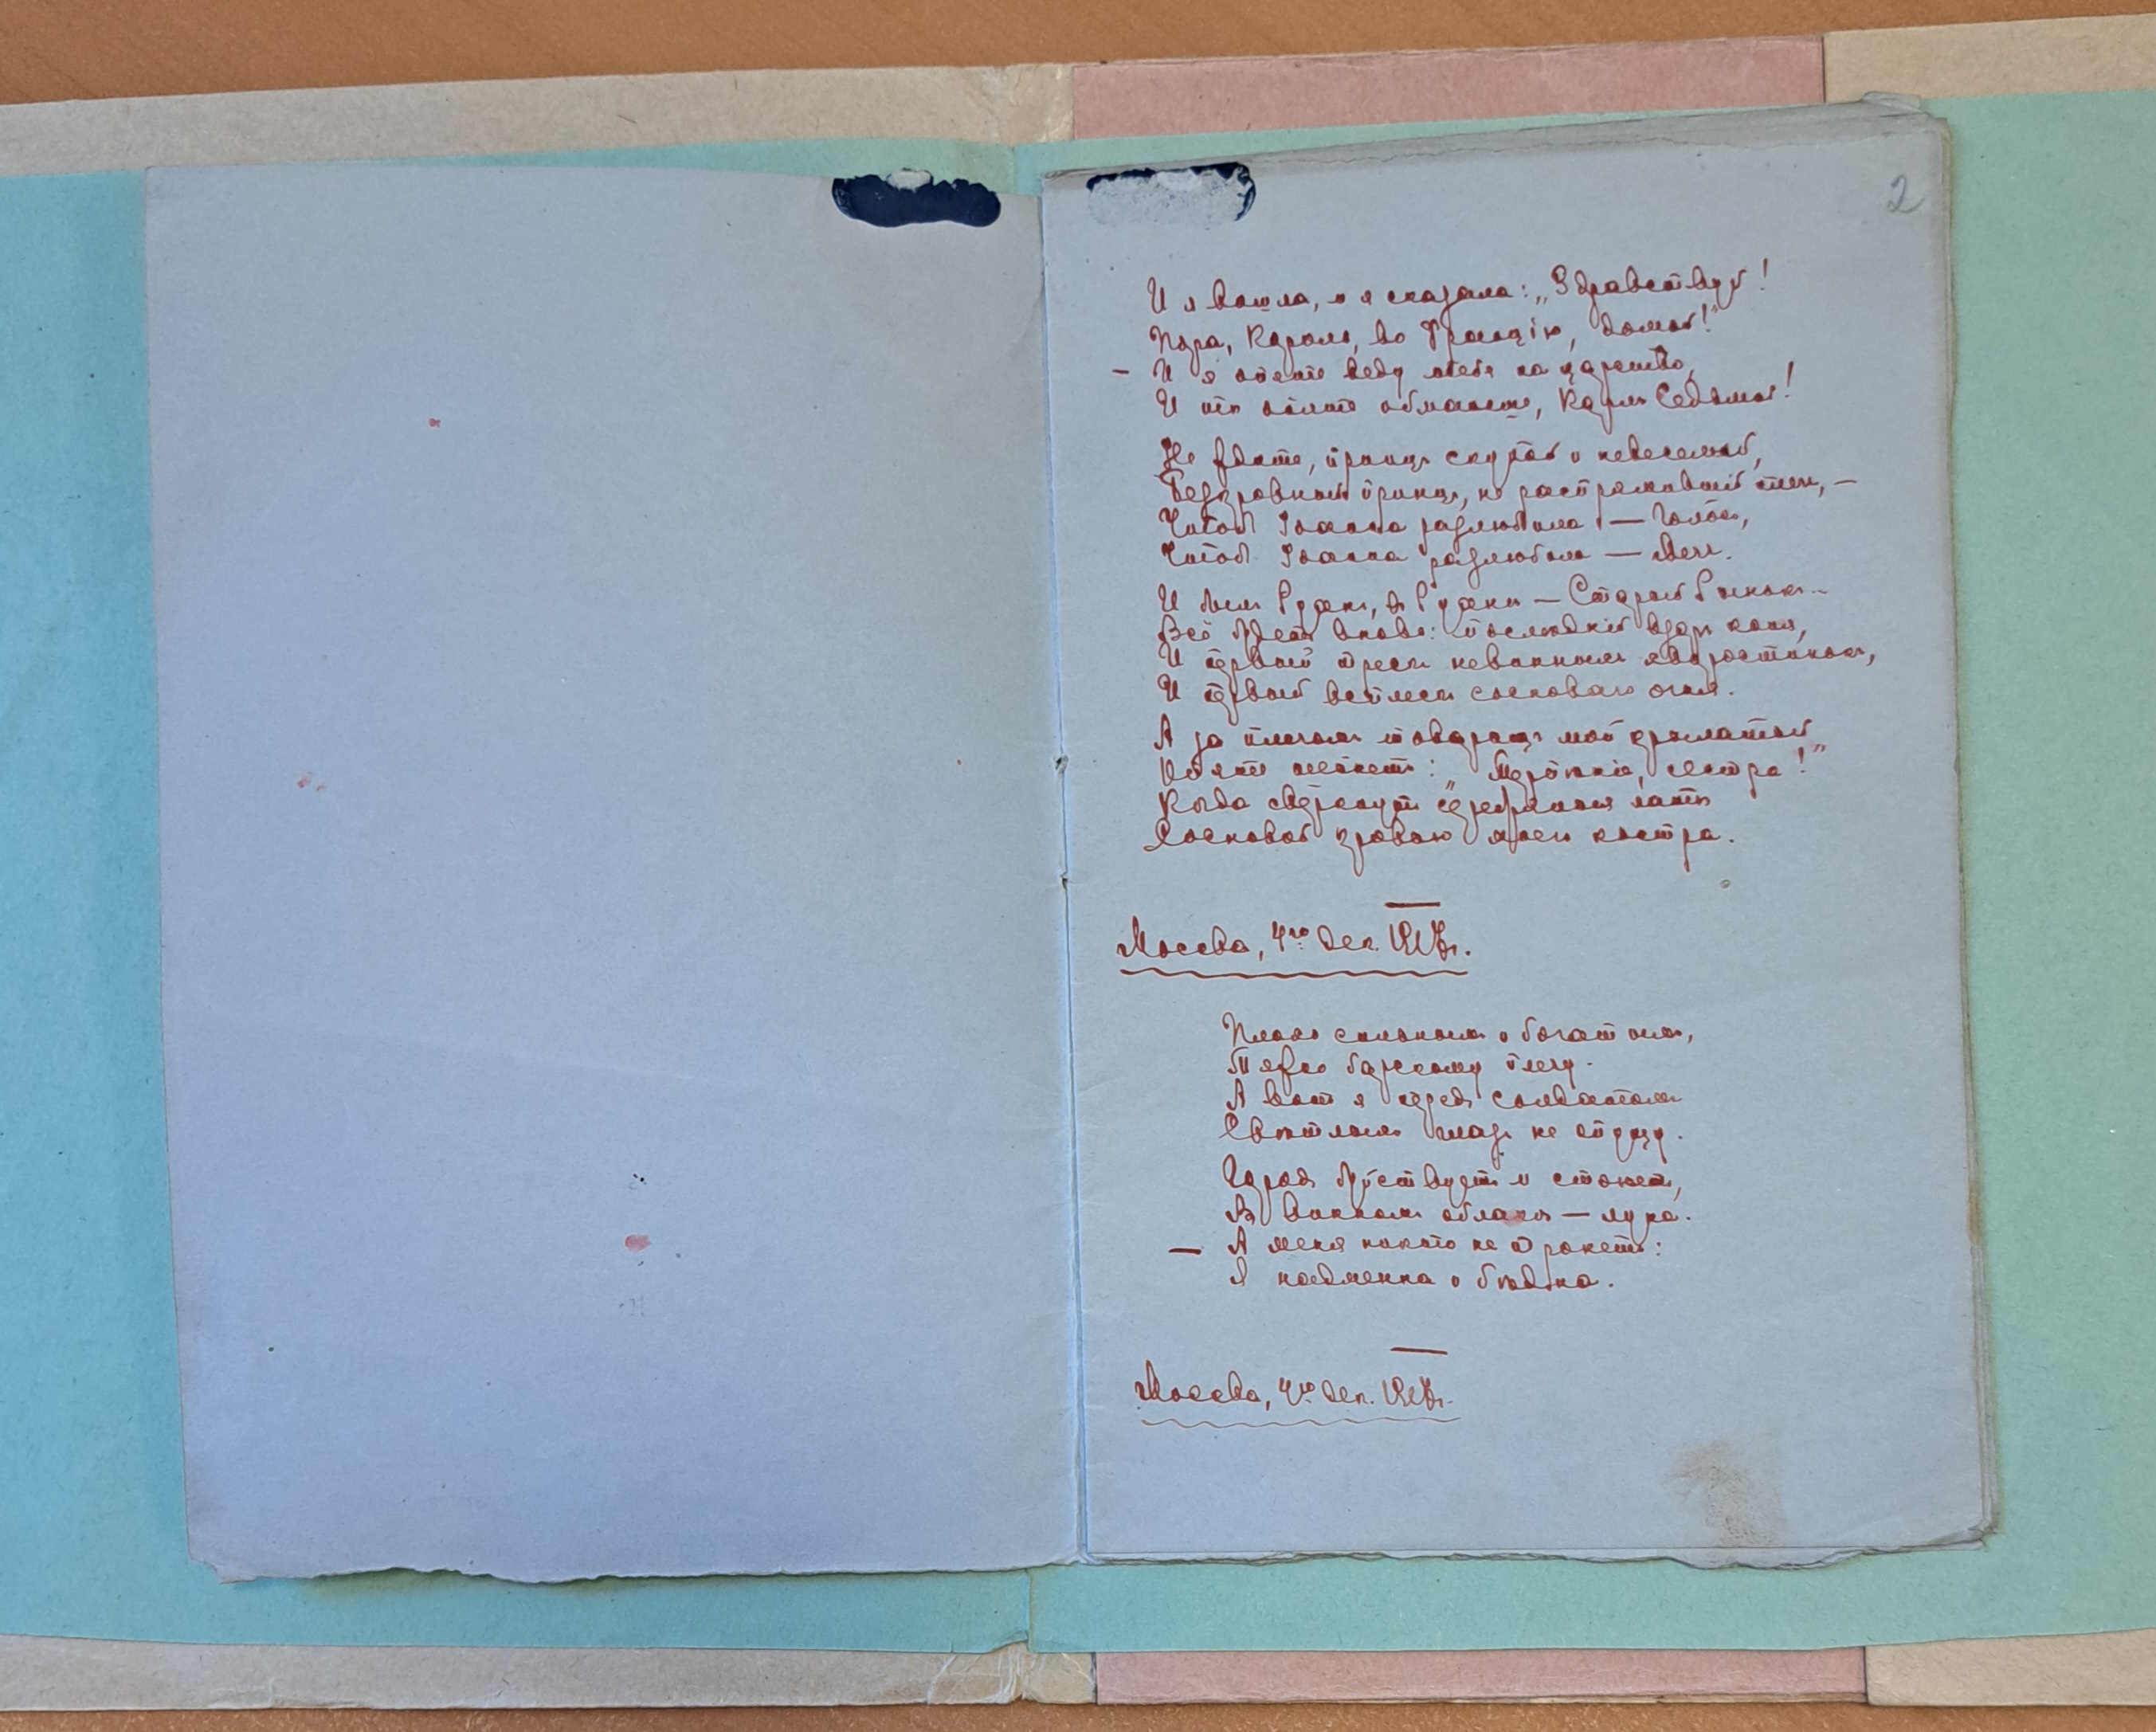 2
И я вошла, и я сказала: „Здравствуй!
Пора, Король, во Францію, домой!"
— И я опять веду тебя на царство,
И ты опять обманешь, Карлъ Седьмой!
Не ждите, принцъ скупой и невеселый,
Безкровный принцъ, не распрямившій плечъ, —
Чтобъ Іоанна разлюбила — Голосъ,
Чтобъ Іоанна разлюбила — Мечъ.
И былъ Руанъ, въ Руанѣ — Старый Рынокъ...
Всё будетъ вновь: послѣдній взоръ коня,
И первый трескъ невинныхъ хворостинокъ,
И первый всплескъ сосноваго огня.
А за плечомъ товарищъ мой крылатый
Опять шепнетъ: „Терпѣніе, сестра!"
Когда сверкнутъ серебряныя латы
Сосновой кровью моего костра.
Москва, 4го дек. 1917г.
Плохо сильнымъ и богатымъ,
Тяжко барскому плечу.
А вотъ я передъ солдатомъ
Свѣтлыхъ глазъ не опущу.
Городъ буйствуетъ и стонетъ,
Въ винномъ облакѣ — луна.
— А меня никто не тронетъ:
Я надменна и бѣдна.
Москва, 4го дек. 1917г.